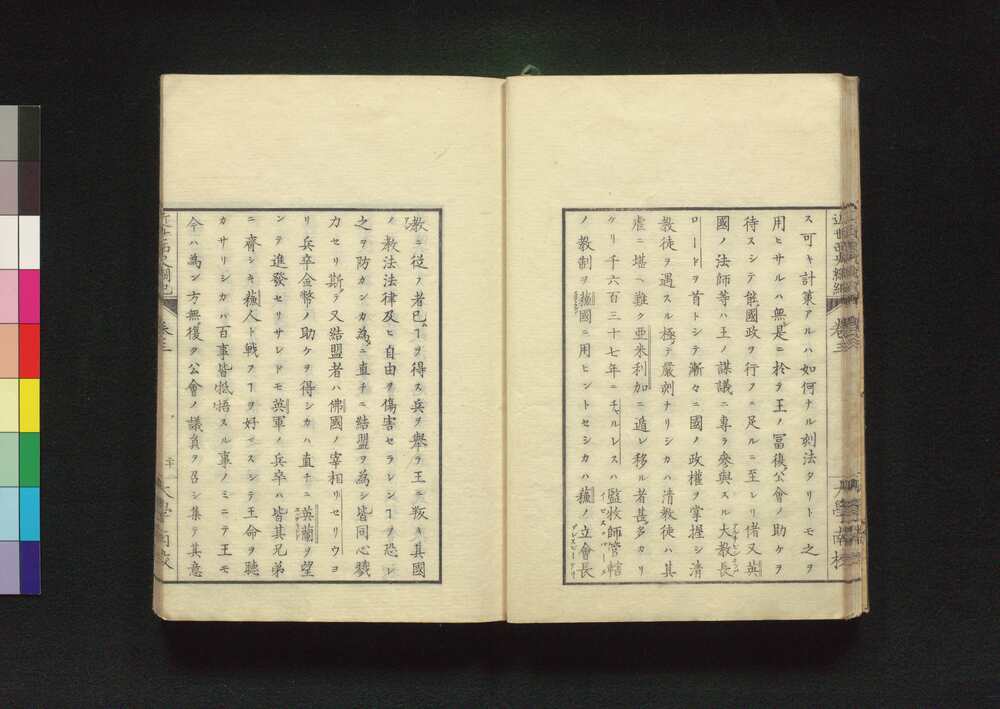 ス可キ計策アルハ如何ナル刻法タリトモ之ヲ
用ヒサルハ無シ是ニ於テ王ノ冨復公會ノ助ケヲ
待スシテ能國政ヲ行フニ足ルニ至レリ偖又英
國ノ法師等ハ王ノ謀議ニ専ラ參與スル大教長
ロードヲ首トシテ漸々ニ國ノ政權ヲ掌握シ清
教徒ヲ遇スル極テ嚴刻ナリシカハ清教徒ハ其
虐ニ堪ヘ難ク亜米利加ニ遁レ移ル者甚多カリ
ケリ千六百三十七年ニチャルレスハ監牧師管轄
ノ教制ヲ蘓國ニ用ヒントセシカハ蘓ノ立會長
卷三
大學南校
教ニ從フ者已ヿヲ得ス兵ヲ舉ケ王ニ叛キ其國
ノ教法法律及ヒ自由ヲ傷害セラレンヿヲ恐レ
之ヲ防カンカ為ニ直チニ結盟ヲ為シ皆同心戮
力セリ斯テ又結盟者ハ佛國ノ宰相リセリウヨ
リ兵卒金幣ノ助ケヲ得シカハ直チニ英蘭ヲ望
ンテ進發セリサレドモ英軍ノ兵卒ハ皆其兄弟
ニ齊シキ蘓人ト戰フヿヲ好マスシテ王命ヲ聽
カサリシカハ百事皆抵悟スル事ノミニテ王モ
今ハ為ン方無復タ公會ノ議員ヲ召シ集テ其意